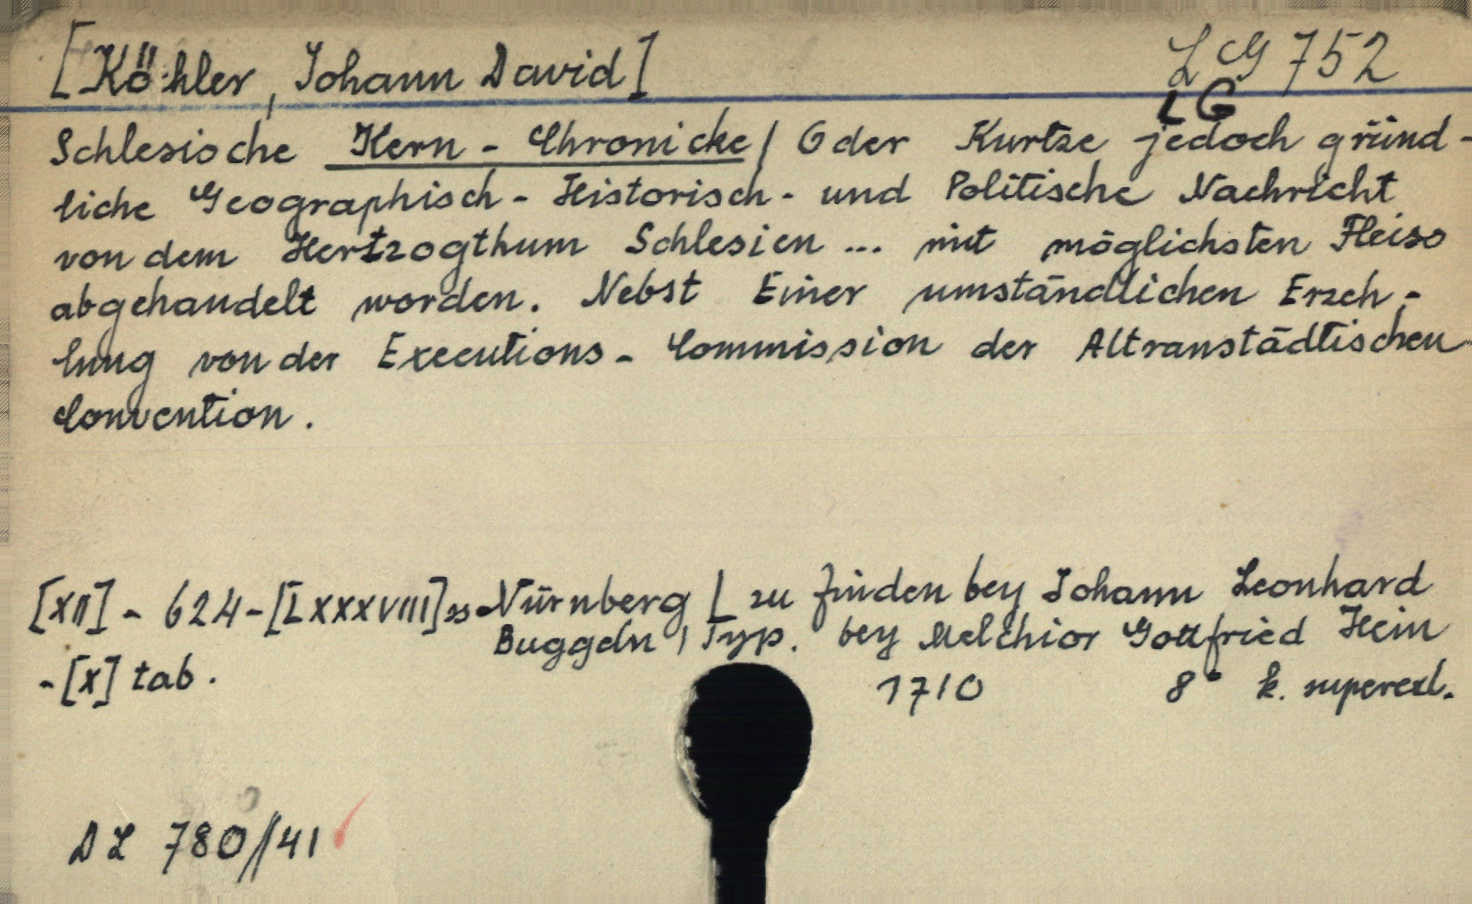 [Köhler, Johann David]
LG 752
LG
Schlesische Kern-Chronicke / Oder Kurtze jedoch gründ-
liche Geographisch-Historisch- und Politische Nachricht
von dem Hertzogthum Schlesien ... mit möglichsten Fleiss
abgehandelt worden. Nebst Einer umständlichen Erzeh-
lung von der Executions-Commission der Altranstädtischen
Convention.
[XII] - 624 - [LXXXVIII] ss Nürnberg [ zu finden bey Johann Leonhard
Buggeln, Typ. bey Melchior Gottfried Hein
- [X] tab.
1710 8° k. superexl.
DL 780//41